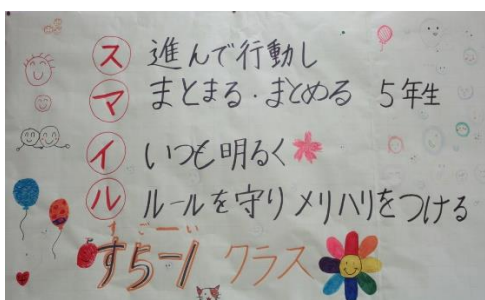 ス 進んで行動し
マ まとまる・まとめる 5年生
イ いつも明るく
ル ルールを守りメリハリをつける
クラス